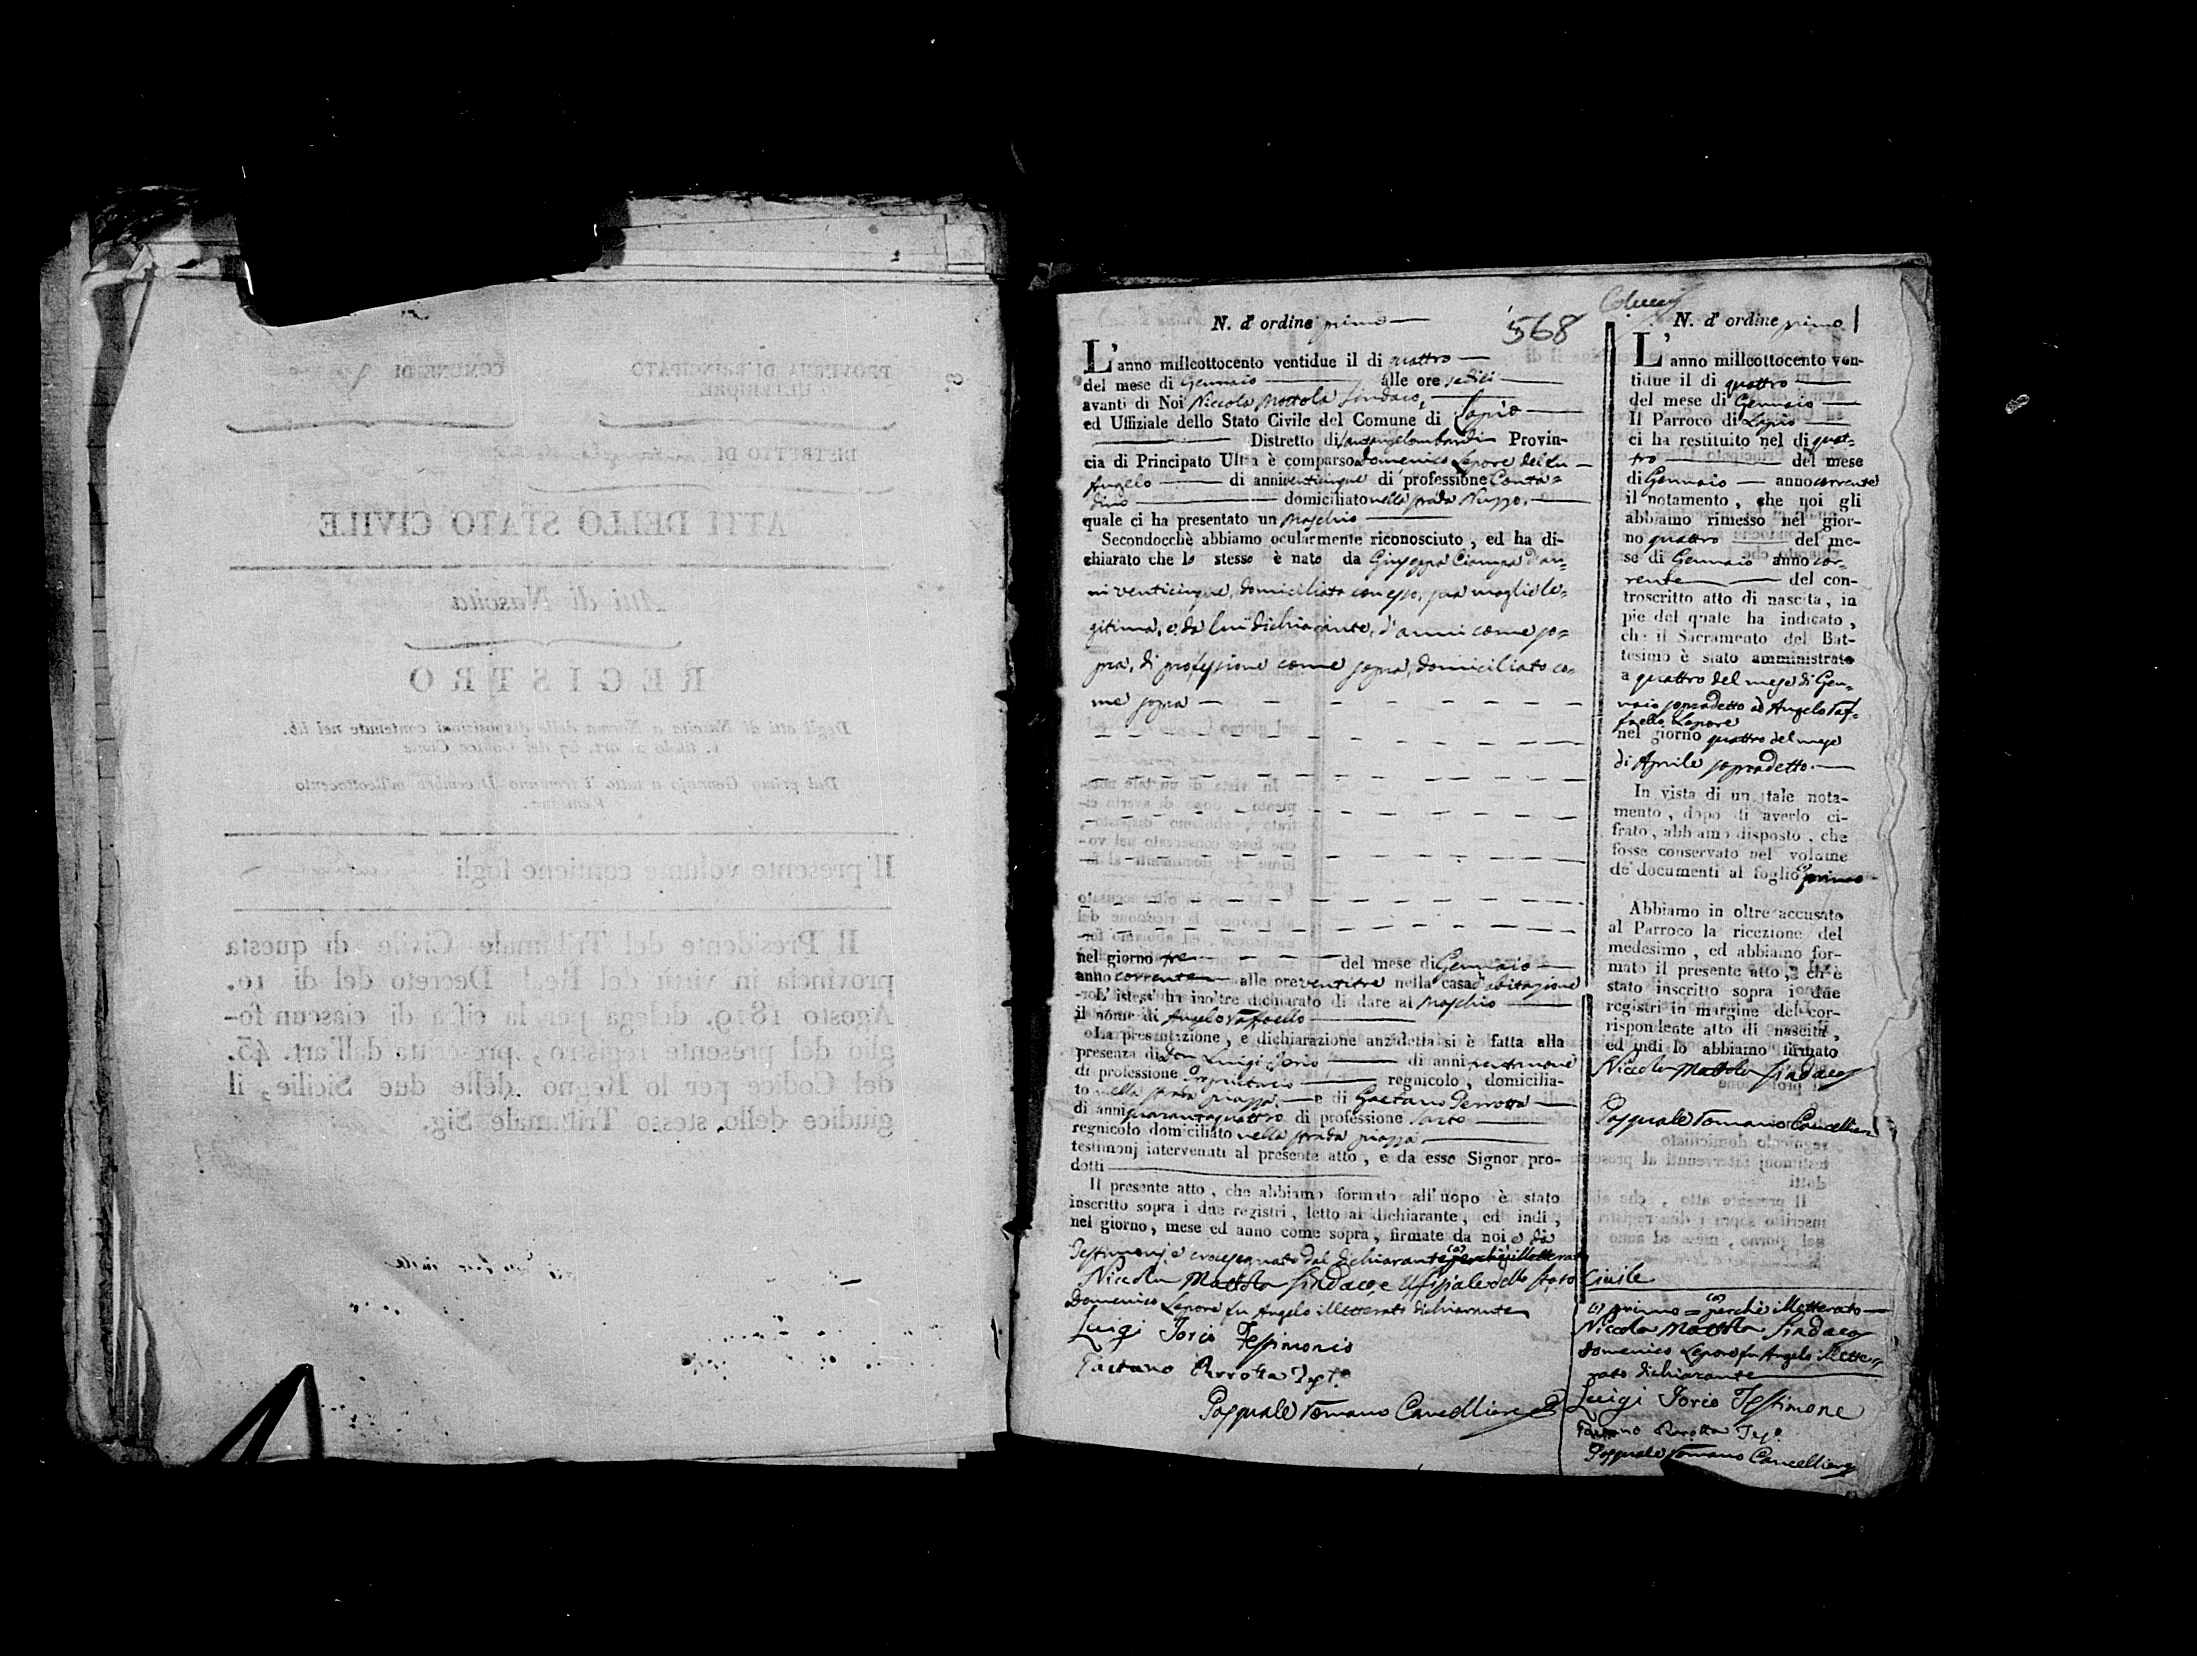 N. d'ordine primo
568
L'anno millcottocento ventidue il di quattro
del mese di Gennaio alle ore sedici
avanti di Noi Niccola Mottola Sindaco,
ed Uffiziale dello Stato Civile del Comune di Lapio
Distretto di Santangelombardi Provin-
cia di Principato Ultra è comparso Domenico Lepore del fu
Angelo di anni venticinque di professione Conta=
dino domiciliato nella strada Nuzzo,
quale ci ha presentato un Maschio
Secondocchè abbiamo ocularmente riconosciuto, ed ha di-
chiarato che lo stesso è nato da Giuseppa Ciampa d'an=
ni venticinque, domiciliata con esso, sua moglie le=
gitima, e da lui dichiarante, d'anni come so=
pra, di professione come sopra, domiciliato co=
me sopra
nel giorno tre del mese di Gennaio
anno corrente alle ore ventitre nella casa d'abitazione
L'istesso ha inoltre dichiarato di dare al Maschio
il nome di Angelo Raffaello
La presentazione, e dichiarazione anzidetta si è fatta alla
presenza di Don Luigi Iorio di anni
di professione Proprietario regnicolo, domicilia-
to nella strada piazza, e di Gaetano Perrotta
di anni quarantaquattro di professione Sarto
regnicolo domiciliato nella strada piazza
testimonj intervenuti al presente atto, e da esso Signor pro-
dotti
Il presente atto, che abbiamo formato all'uopo è stato
inscritto sopra i due registri, letto al dichiarante, ed indi,
nel giorno, mese ed anno come sopra, firmate da noi e da
Testimonj e crocesegnato dal dichiarante perchè illetterato
Niccola Mottola Sindaco, e Uffiziale dello Stato Civile
Domenico Lepore fu Angelo illetterato dichiarante
Luigi Iorio Testimonio
Gaetano Perrotta Test.o
Pasquale Romano Cancelliere
N. d'ordine primo 1
L'anno millcottocento ven-
tidue il di quattro
del mese di Gennaio
Il Parroco di Lapio
ci ha restituito nel di quat=
tro del mese
di Gennaio anno corrente
il notamento, che noi gli
abbiamo rimesso nel gior-
no quattro del me-
se di Gennaio anno cor=
rente del con-
troscritto atto di nascita, in
piè del quale ha indicato,
che il Sacramento del Bat-
tesimo è stato amministrato
a quattro del mese di Gen=
naio sopradetto ad Angelo Raf=
faello Lepore
nel giorno quattro del mese
di Aprile sopradetto.
In vista di un tale nota-
mento, dopo di averlo ci-
frato, abbiamo disposto, che
fosse conservato nel volume
de' documenti al foglio primo
Abbiamo in oltre accusato
al Parroco la ricezione del
medesimo, ed abbiamo for-
mato il presente atto, ch'è
stato inscritto sopra i due
registri in margine del cor-
rispondente atto di nascita,
ed indi lo abbiamo firmato
Niccola Mottola Sindaco
Pasquale Romano Cancelliere
(1) primo = (2) perchè illetterato
Niccola Mottola Sindaco
Domenico Lepore fu Angelo illette=
rato dichiarante
Luigi Iorio Testimone
Gaetano Perrotta Tes.o
Pasquale Romano Cancelliere